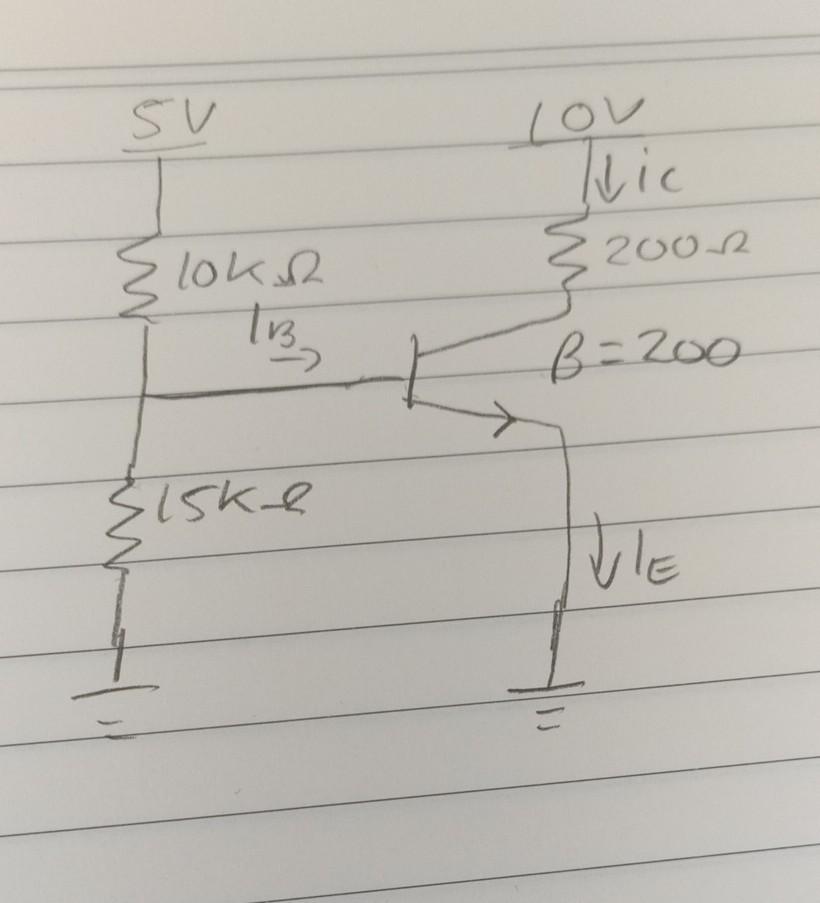 5V
10V
ic
10kΩ
200Ω
IB
β=200
15kΩ
IE